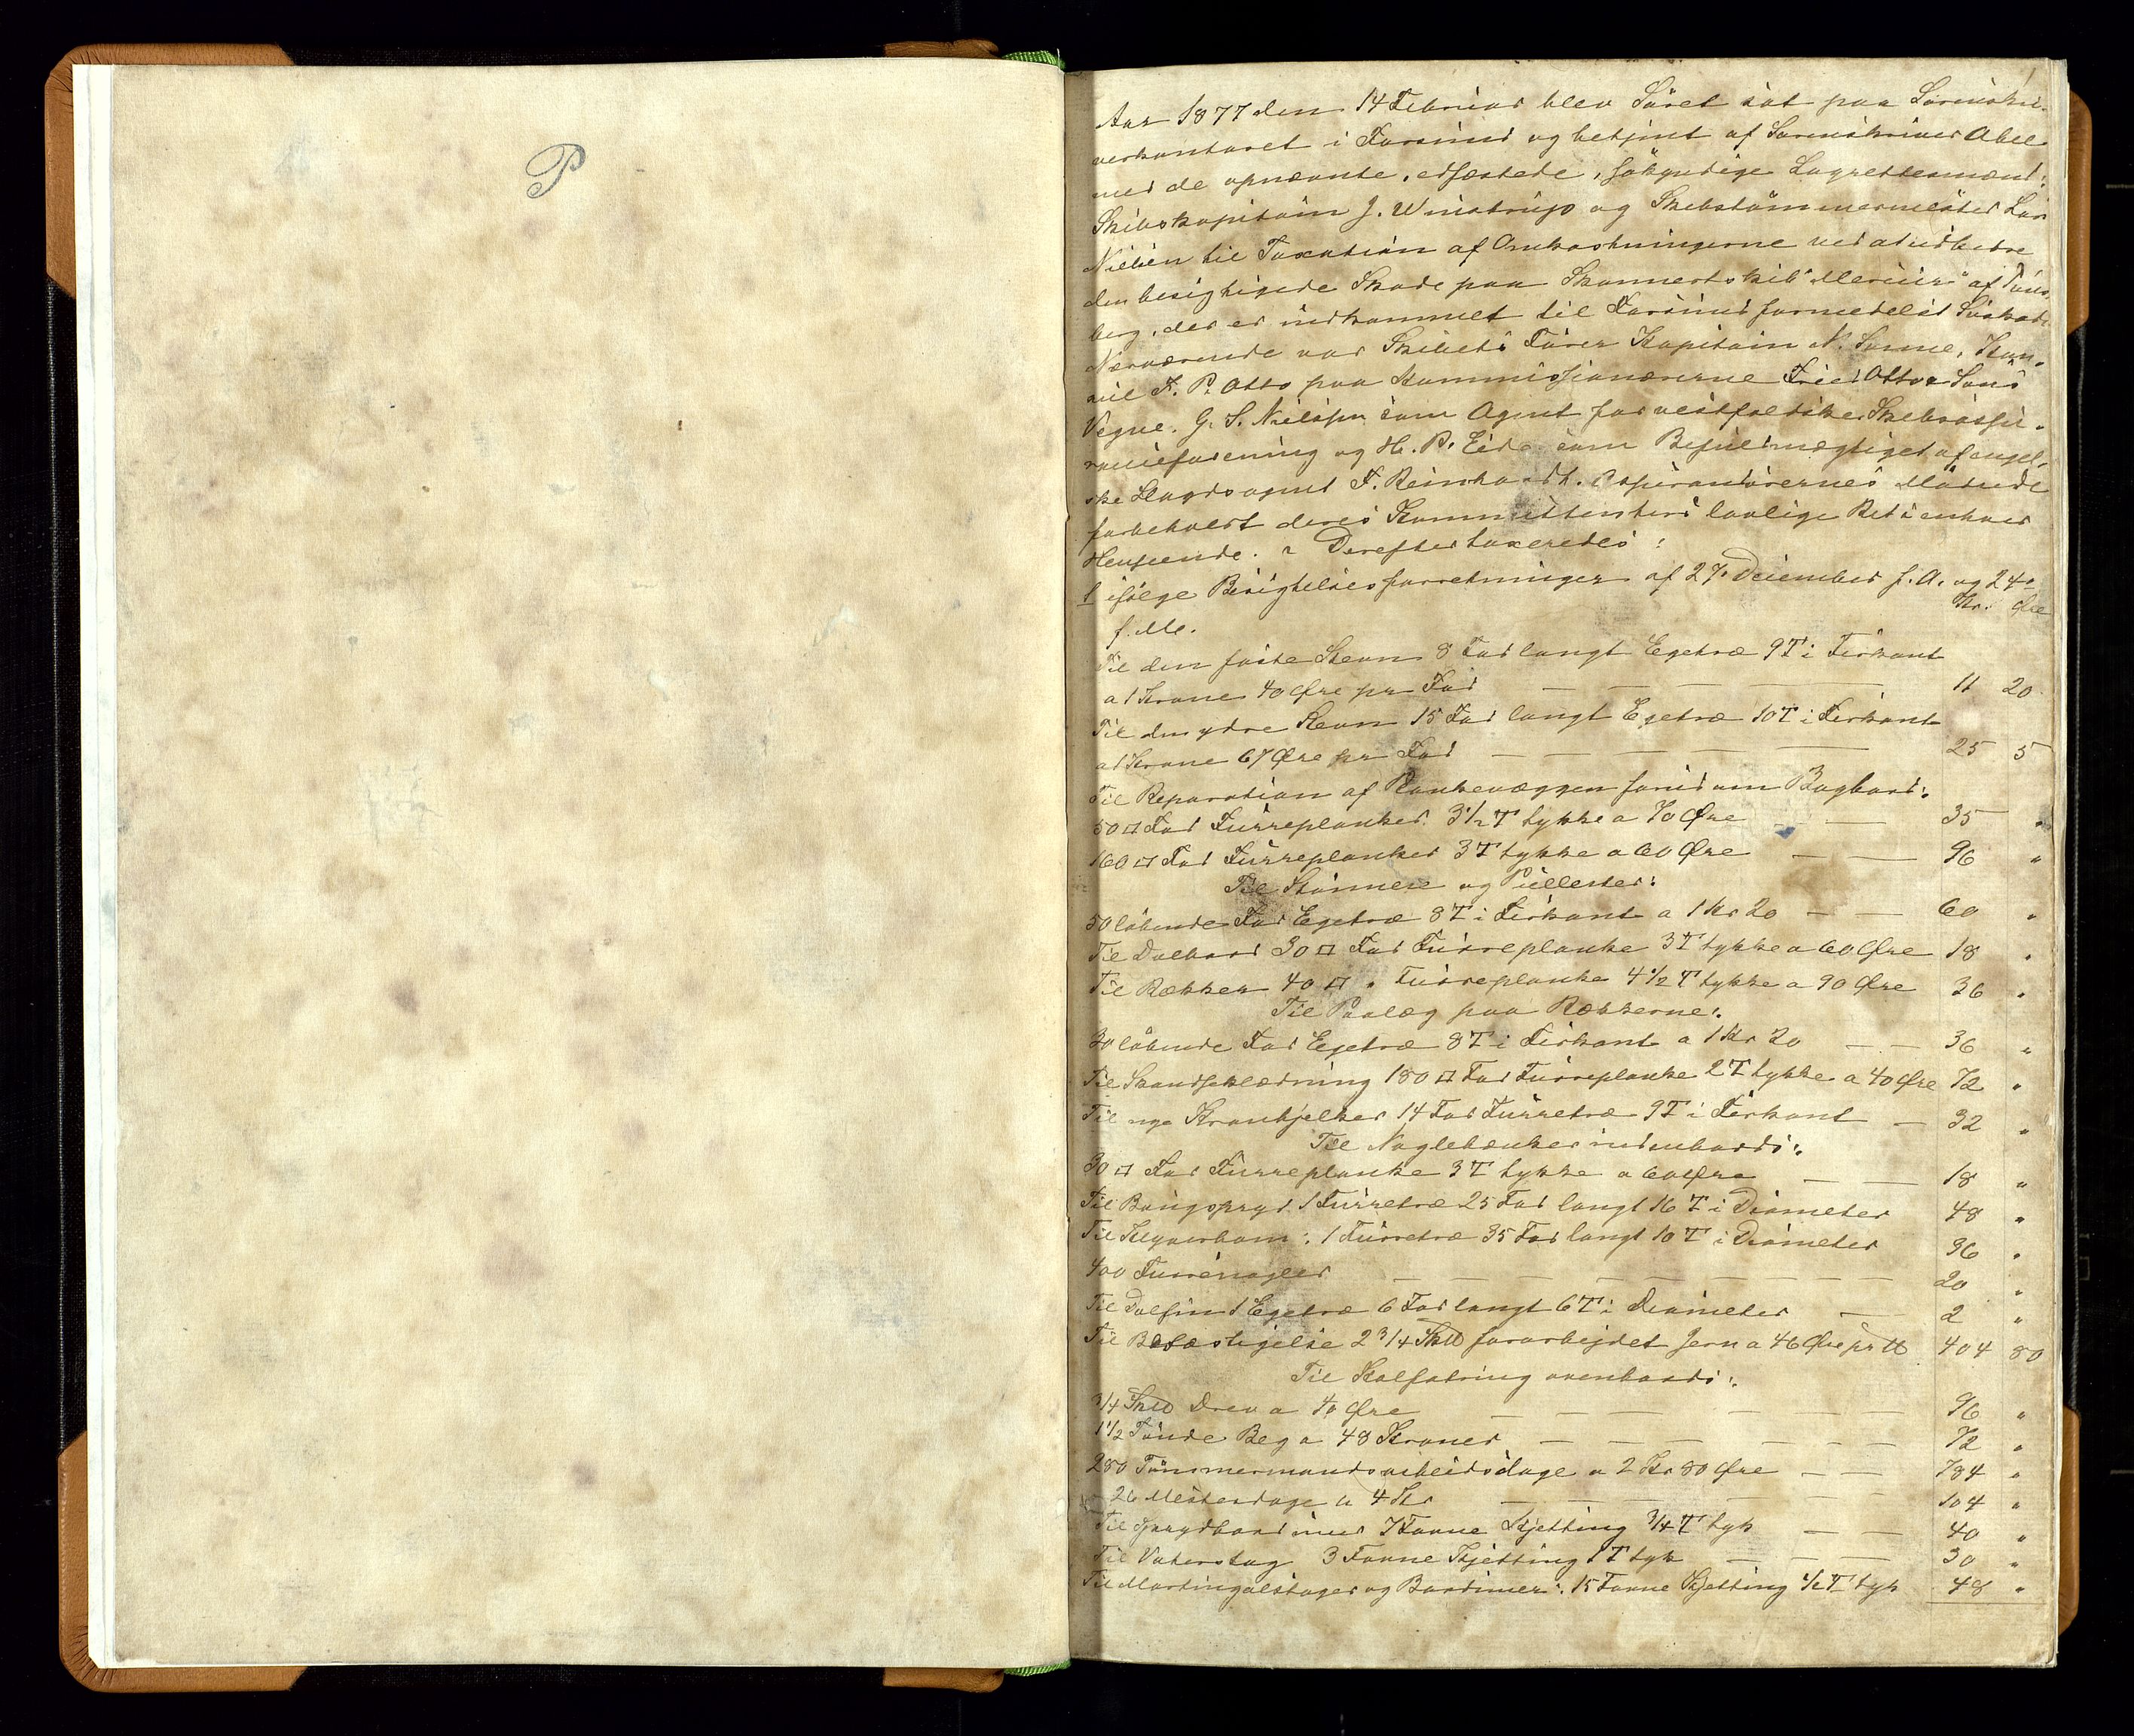 P
1
Aar 1877 den 14 Februar blev Søret sat paa Sorenskri-
verkontoret i Farsund og betjent af Sorenskriver Abel
med de opnævnte, edfæstede, søkyndige Lagrettesmænd:
Skibskapitain J. Winstrup og Skibstømmermester Lar
Nielsen til Taxation af Omkostningerne ved at udbedre
den besigtigede Skade paa Skonnertskib "Mercur" af Tøns-
berg, der er indkommet til Farsund formedelst Søskade.
Nærværende var Skibets Fører Kapitain N. Sorne, Kon-
sul F. P. Otto paa Kommissionærerne Fried Otto & Søns
Vegne, G. S. Nielsen som Agent for vestfoldske Skibsassu-
ranceforening og H. P. Eide som Befuldmægtiget af engel-
ske Lloyds agent F. Reinhardt. Assurandørernes Mødende
forbeholdt deres Kommittenters lovlige Ret i enhver
Henseende. Derefter taxeredes:
1 ifølge Besigtelsesforretninger af 27 December f. A. og 24
f. M.
Kr. Øre
Til den faste Stevn 8 Fod langt Egetræ 9 T i Firkant
a 1 Krone 40 Øre pr Fod — — — 11 20
Til den ydre Stevn 15 Fod langt Egetræ 10 T i Firkant
a 1 Krone 67 Øre pr Fod — — — — — 25 5
Til Reparation af Plankevæggen forud om Bagbord:
50 □ Fod Furreplanker 3 1/2 T tykke a 70 Øre — — 35 "
160 □ Fod Furreplanker 3 T tykke a 60 Øre — — 96 "
Til Støtter og Pullerter:
50 løbende Fod Egetræ 8 T i Firkant a 1 Kr 20 — — 60 "
Til Dolbord 30 □ Fod Furreplanke 3 T tykke a 60 Øre 18 "
Til Rækker 40 □ " Furreplanke 4 1/2 T tykke a 90 Øre 36 "
Til Paalæg paa Rækkerne:
30 løbende Fod Egetræ 8 T i Firkant a 1 Kr 20 — — 36 "
Til Skandseklædning 180 □ Fod Furreplanke 2 T tykke a 40 Øre 72 "
Til nye Kranbjelker 14 Fod Furretræ 9 T i Firkant — 32 "
Til Naglebænker indenbords:
30 □ Fod Furreplanke 3 T tykke a 60 Øre — — 18 "
Til Bougspryd: 1 Furretræ 25 Fod langt 16 T i Diameter 48 "
Til Klyverbom: 1 Furretræ 35 Fod langt 10 T i Diameter 36 "
400 Furrenagler — — — — — — — 20 "
Til Dolfin 1 Egetræ 6 Fod langt 6 T i Diameter — 2 "
Til Befæstigelse 2 3/4 Sk℔ forarbejdet Jern a 46 Øre pr ℔ 404 80
Til Kalfatring ovenbords:
3/4 Sk℔ Drev a 40 Øre — — — — 96 "
1 1/2 Tønde Beg a 48 Kroner — — — — — — 72 "
280 Tømmermandsarbeidsdage a 2 Kr 80 Øre — — 784 "
26 Mesterdage a 4 Kr — — — — 104 "
Til Sprydbardiner 7 Favne Kjetting 3/4 T tyk — — 40 "
Til Vaterstag 3 Favne Kjetting 1 T tyk — — — 30 "
Til Martingalstager og Bardiner: 15 Favne Kjetting 1/2 T tyk 48 "